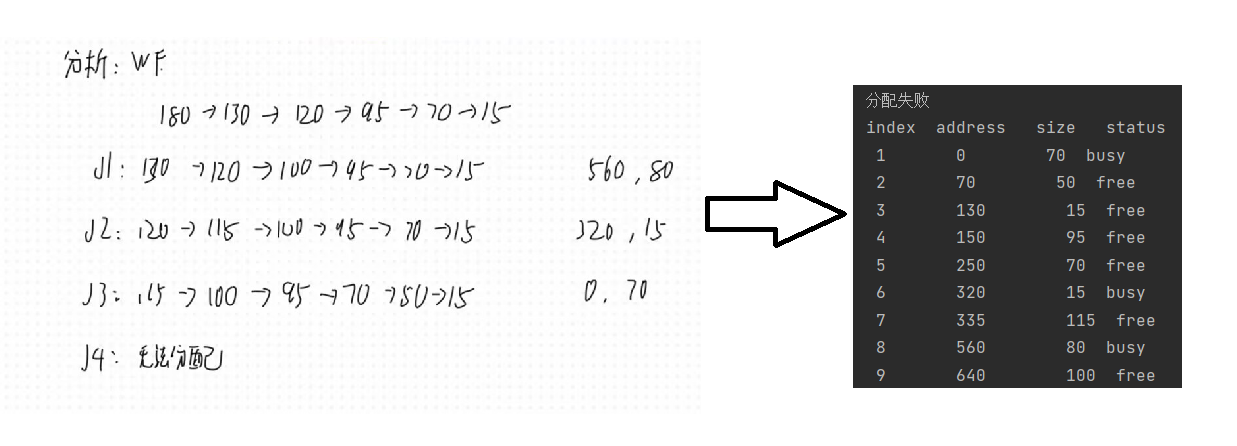 分析: WF
180→130→120→95→70→15
J1: 130→120→100→95→70→15 560,80
J2: 120→115→100→95→70→15 320,15
J3: 115→100→95→70→50→15 0,70
J4: 无法分配
分配失败
index address size status
1 0 70 busy
2 70 50 free
3 130 15 free
4 150 95 free
5 250 70 free
6 320 15 busy
7 335 115 free
8 560 80 busy
9 640 100 free